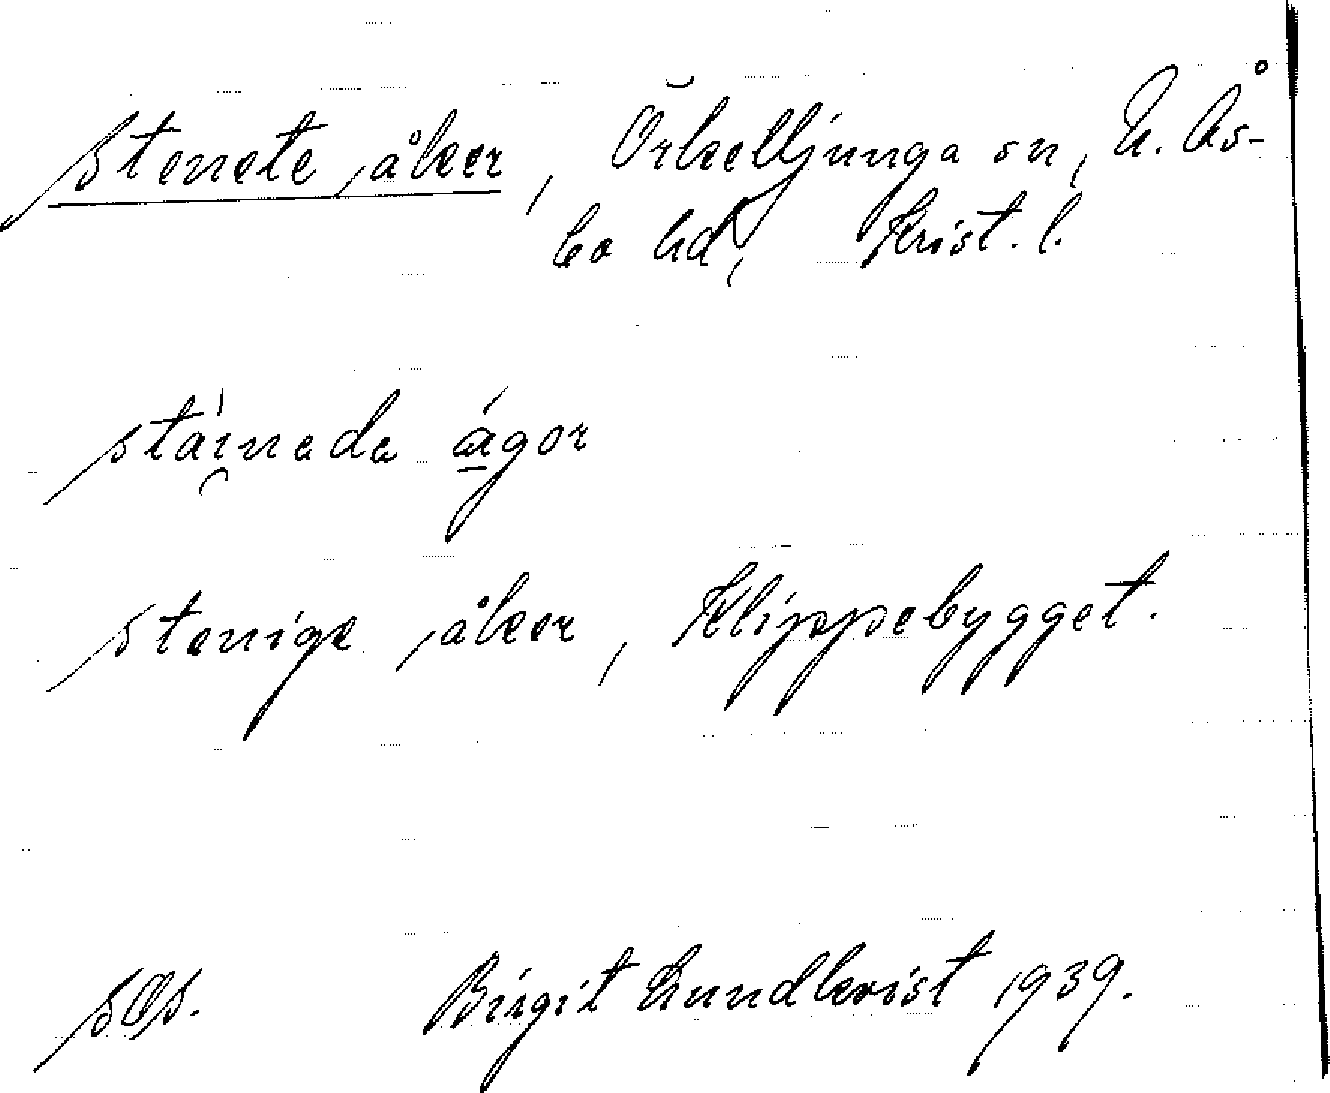 Stenete åker, Örkelljunga sn, N. Ås-
bo hd, Krist. l.
stäineda ägor
steniga åker, Klippebygget.
Birgit Lundkvist 1939.